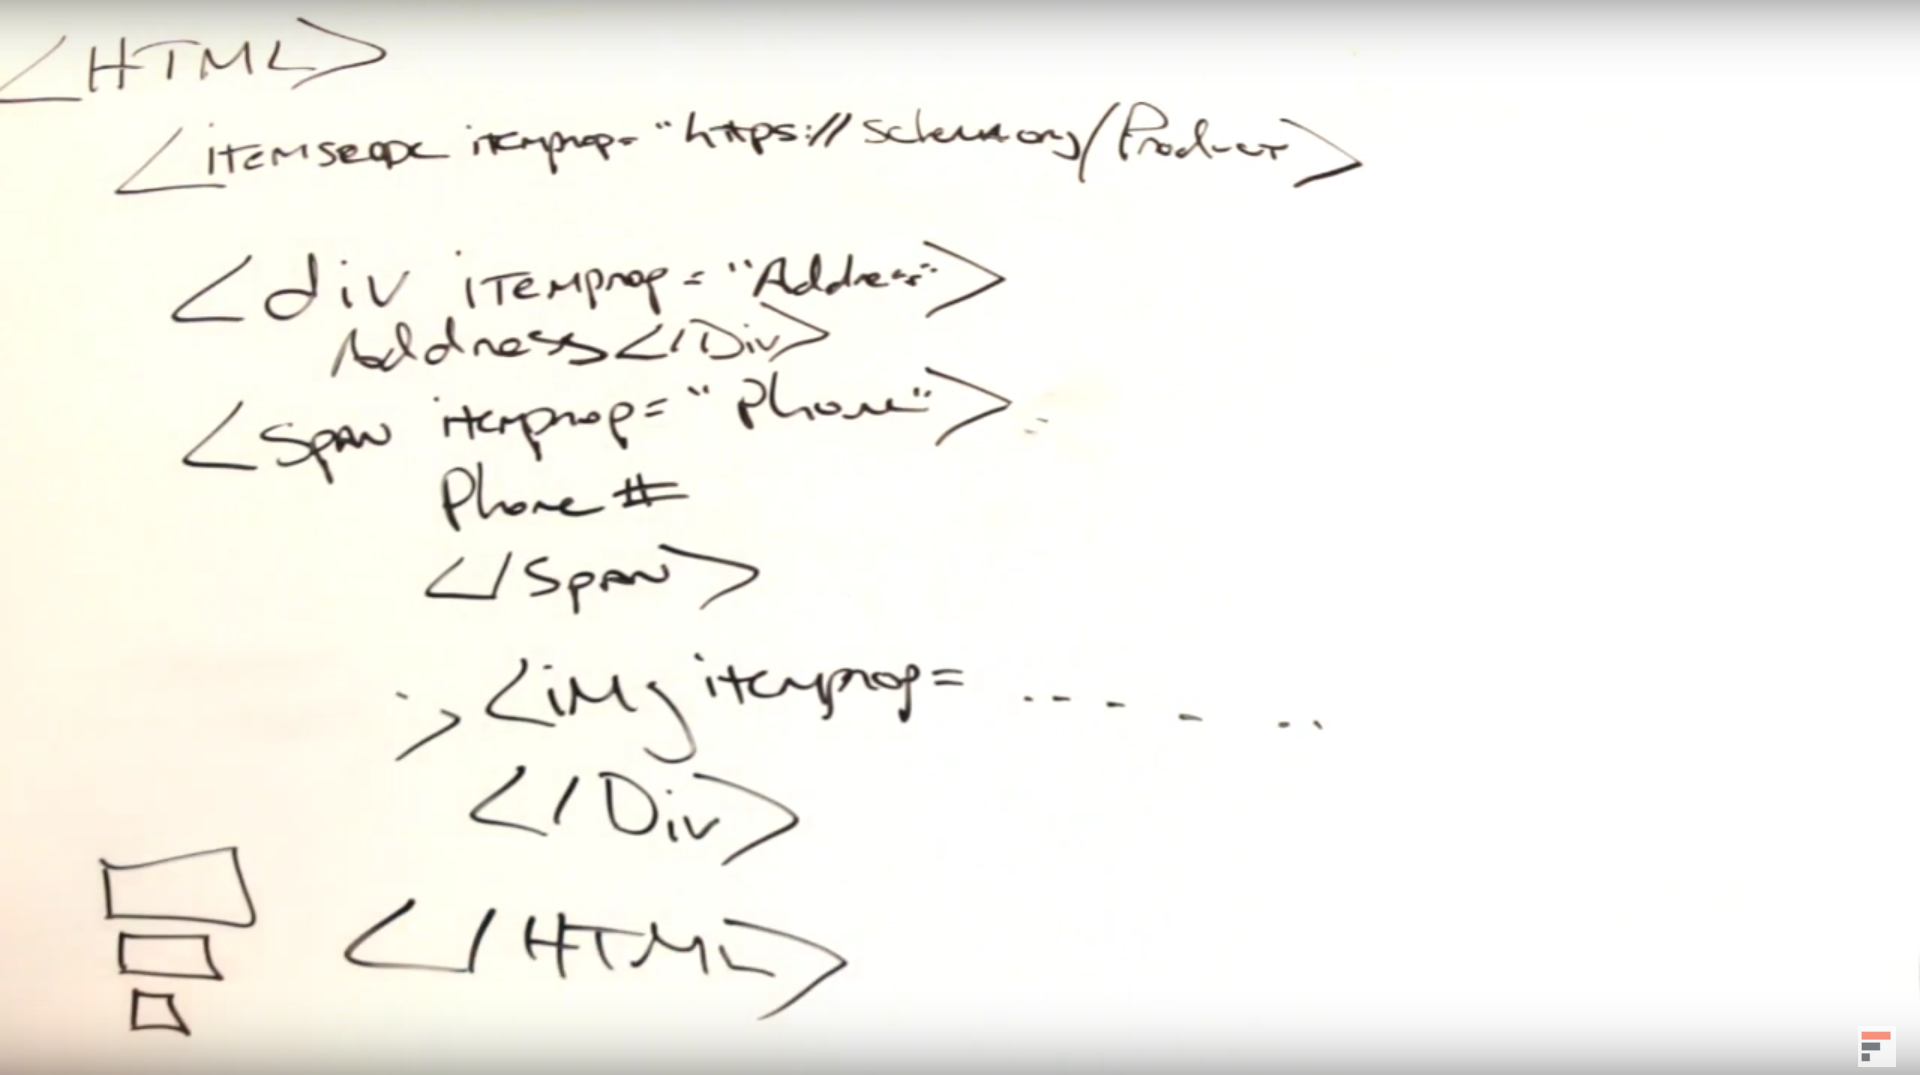 <HTML>
<itemscope itemprop="https://schema.org/Product>
<div itemprop="Address">
Address</Div>
<span itemprop="phone">
Phone #
</span>
<img itemprop= . - - - . .
</Div>
</HTML>